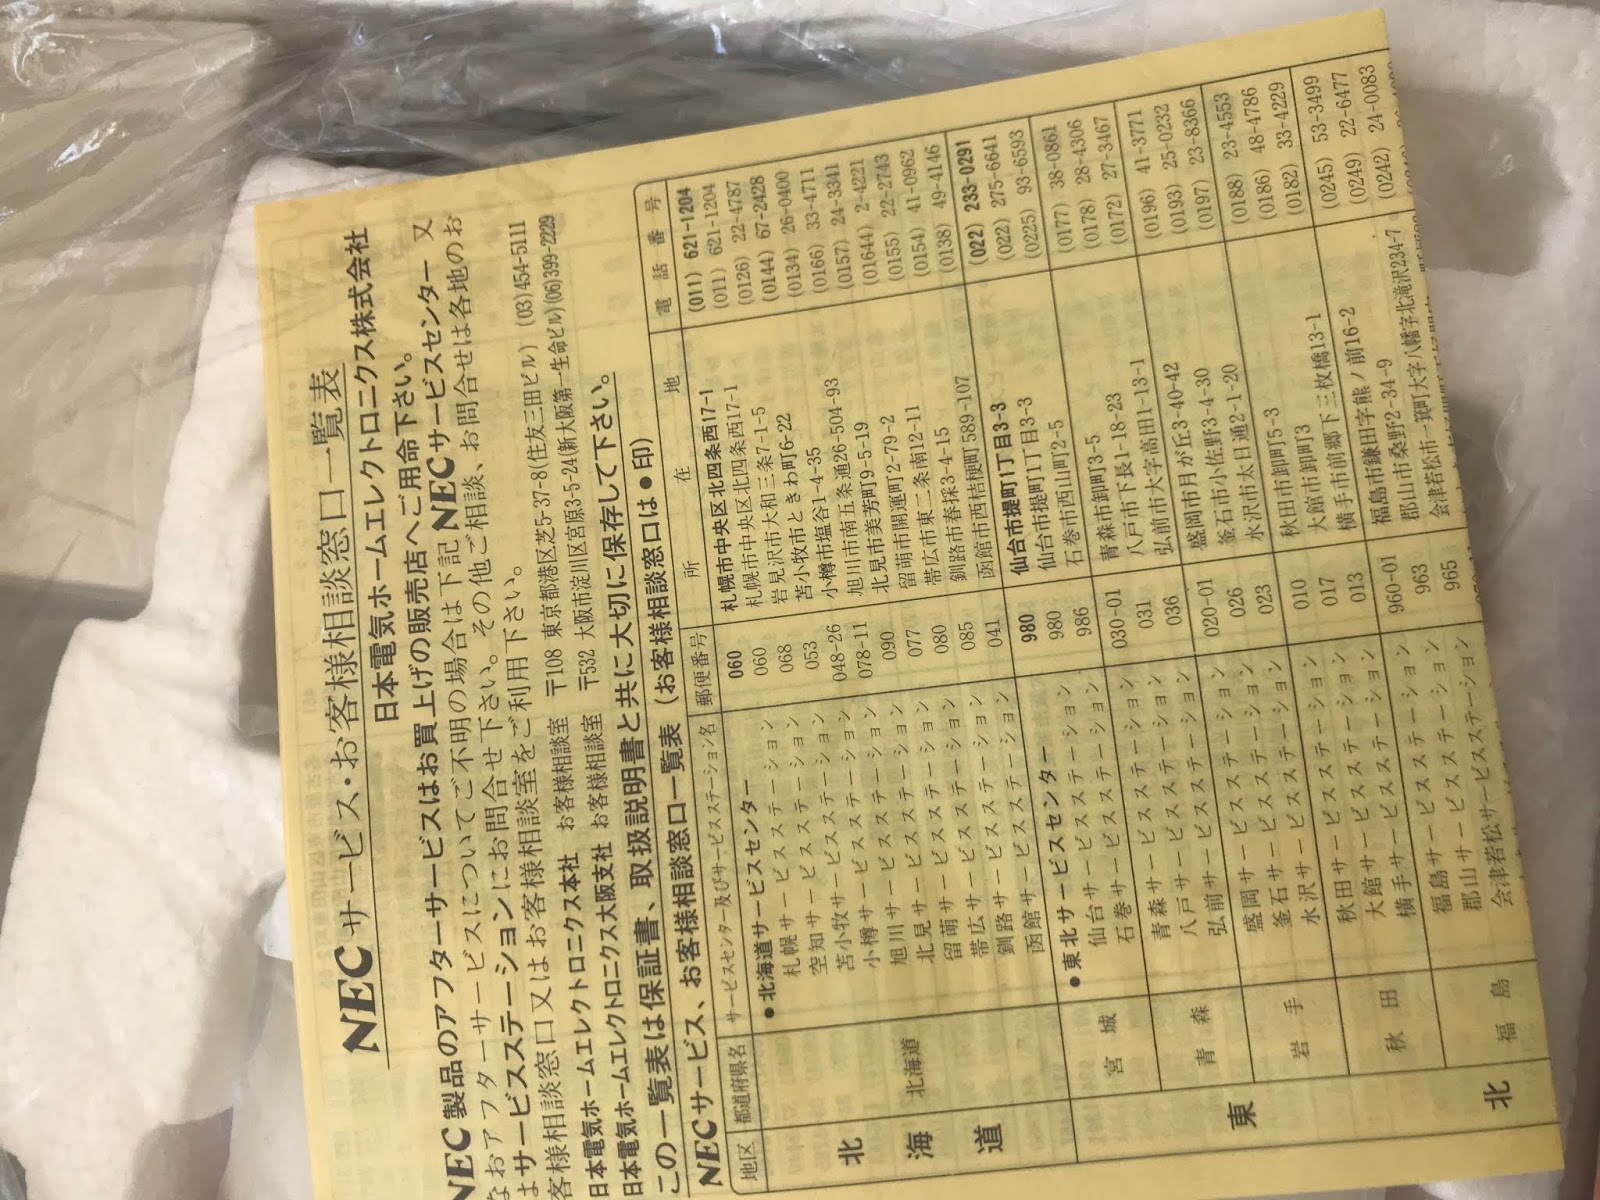 NECサービス・お客様相談窓口一覧表
日本電気ホームエレクトロニクス株式会社
NEC製品のアフターサービスはお買上げの販売店へご用命下さい。
なおアフターサービスについてご不明の場合は下記NECサービスセンター又
はサービスステーションにお問合せ下さい。その他ご相談、お問合せは各地のお
客様相談窓口又はお客様相談室をご利用下さい。
日本電気ホームエレクトロニクス本社 お客様相談室 〒108 東京都港区芝5-37-8(住友三田ビル) (03)454-5111
日本電気ホームエレクトロニクス大阪支社 お客様相談室 〒532 大阪市淀川区宮原3-5-24(新大阪第一生命ビル)(06)399-2229
この一覧表は保証書、取扱説明書と共に大切に保存して下さい。
NECサービス、お客様相談窓口一覧表 (お客様相談窓口は●印)
地区 都道府県名 サービスセンター及びサービスステーション名 郵便番号 所在地 電話番号
北海道 北海道 ●北海道サービスセンター 060 札幌市中央区北四条西17-1 (011) 621-1204
札幌サービスステーション 060 札幌市中央区北四条西17-1 (011) 621-1204
空知サービスステーション 068 岩見沢市大和三条7-1-5 (0126) 22-4787
苫小牧サービスステーション 053 苫小牧市ときわ町6-22 (0144) 67-2428
小樽サービスステーション 048-26 小樽市塩谷1-4-35 (0134) 26-0400
旭川サービスステーション 078-11 旭川市南五条通26-504-93 (0166) 33-4711
北見サービスステーション 090 北見市美芳町9-5-19 (0157) 24-3341
留萌サービスステーション 077 留萌市開運町2-79-2 (01644) 2-4221
帯広サービスステーション 080 帯広市東二条南12-11 (0155) 22-2743
釧路サービスステーション 085 釧路市春採3-4-15 (0154) 41-0962
函館サービスステーション 041 函館市西桔梗町589-107 (0138) 49-4146
東北 宮城 ●東北サービスセンター 980 仙台市堤町1丁目3-3 (022) 233-0291
仙台サービスステーション 980 仙台市堤町1丁目3-3 (022) 275-6641
石巻サービスステーション 986 石巻市西山町2-5 (0225) 93-6593
青森 青森サービスステーション 030-01 青森市卸町3-5 (0177) 38-0861
八戸サービスステーション 031 八戸市下長1-18-23 (0178) 28-4306
弘前サービスステーション 036 弘前市大字高田1-13-1 (0172) 27-3467
岩手 盛岡サービスステーション 020-01 盛岡市月が丘3-40-42 (0196) 41-3771
釜石サービスステーション 026 釜石市小佐野3-4-30 (0193) 25-0232
水沢サービスステーション 023 水沢市太日通2-1-20 (0197) 23-8366
秋田 秋田サービスステーション 010 秋田市卸町5-3 (0188) 23-4553
大館サービスステーション 017 大館市卸町3 (0186) 48-4786
横手サービスステーション 013 横手市前郷下三枚橋13-1 (0182) 33-4229
福島 福島サービスステーション 960-01 福島市鎌田字熊ノ前16-2 (0245) 53-3499
郡山サービスステーション 963 郡山市桑野2-34-9 (0249) 22-6477
会津若松サービスステーション 965 会津若松市一箕町大字八幡字北滝沢234-7 (0242) 24-0083